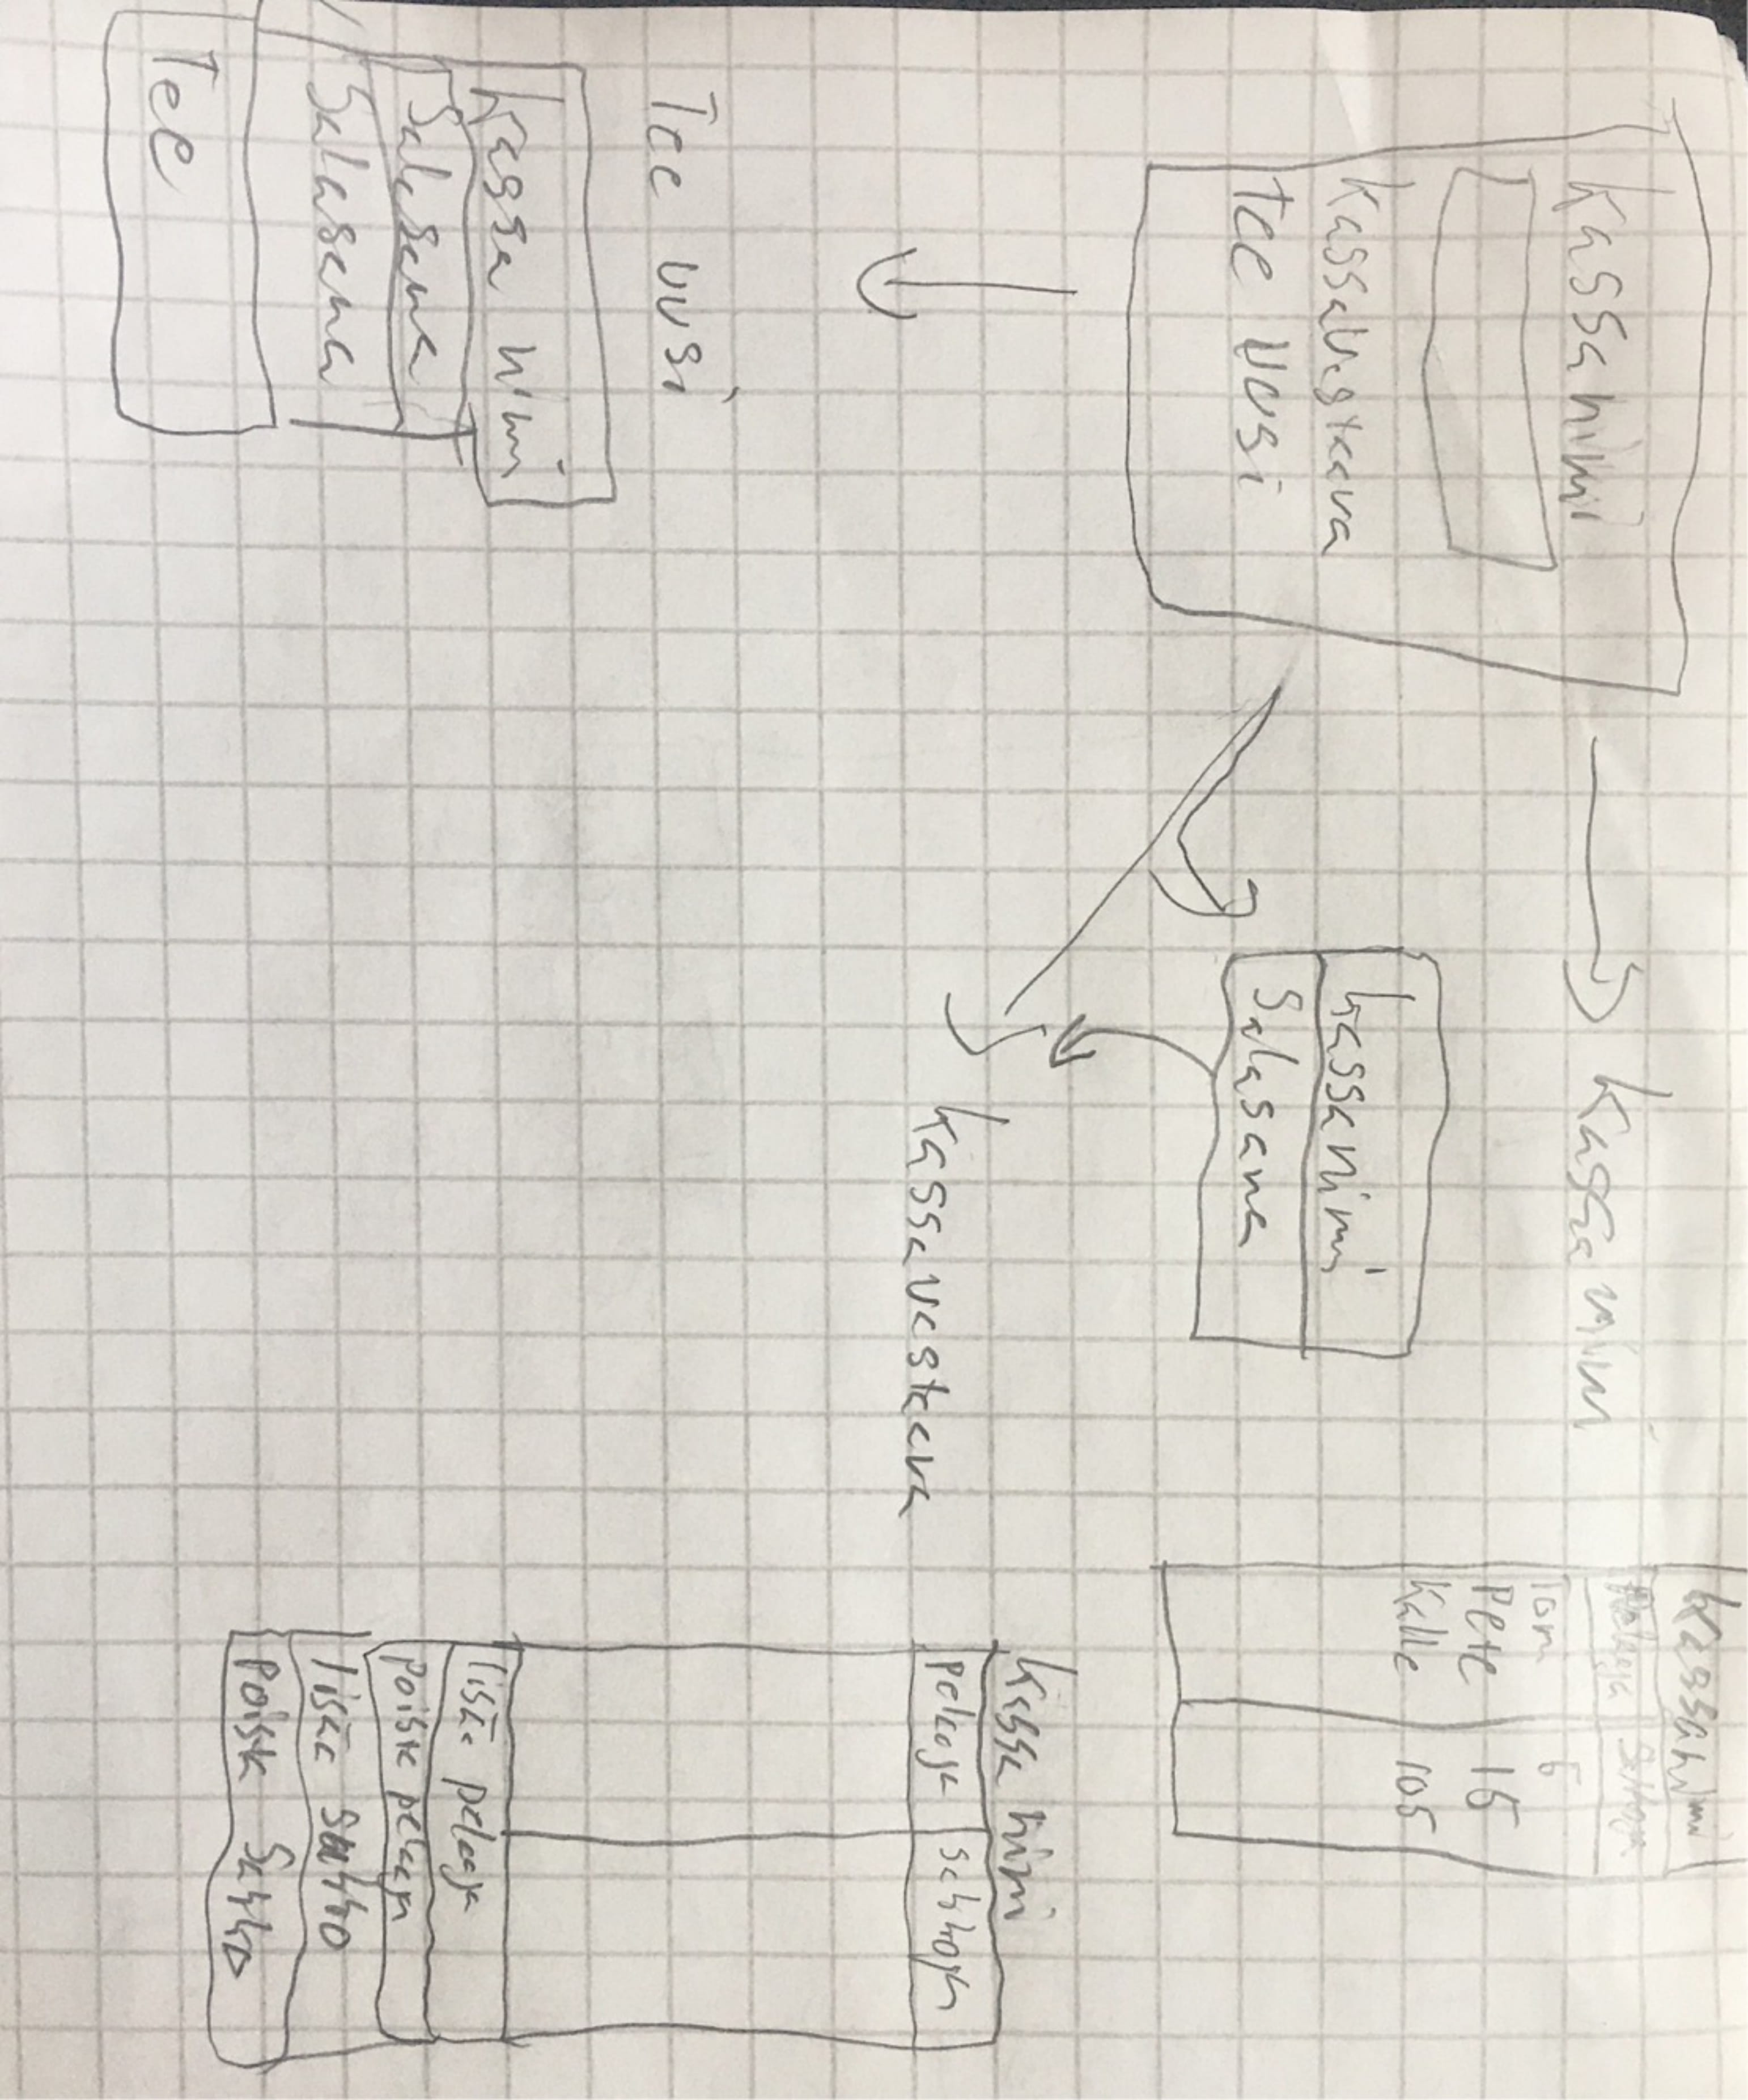 Kassanimi
Kassavastaava
Tee uusi
Kassa nimi
Kassanimi
Salasana
Kassavastaava
Kassanimi
Pelaaja Sakkoja
Tom 5
Pete 15
Kalle 105
Kassa nimi
pelaaja sakkoja
lisää pelaaja
poista pelaaja
lisää sakko
poista Sakko
Tee uusi
Kassa nimi
Salasana
Salasana
Tee